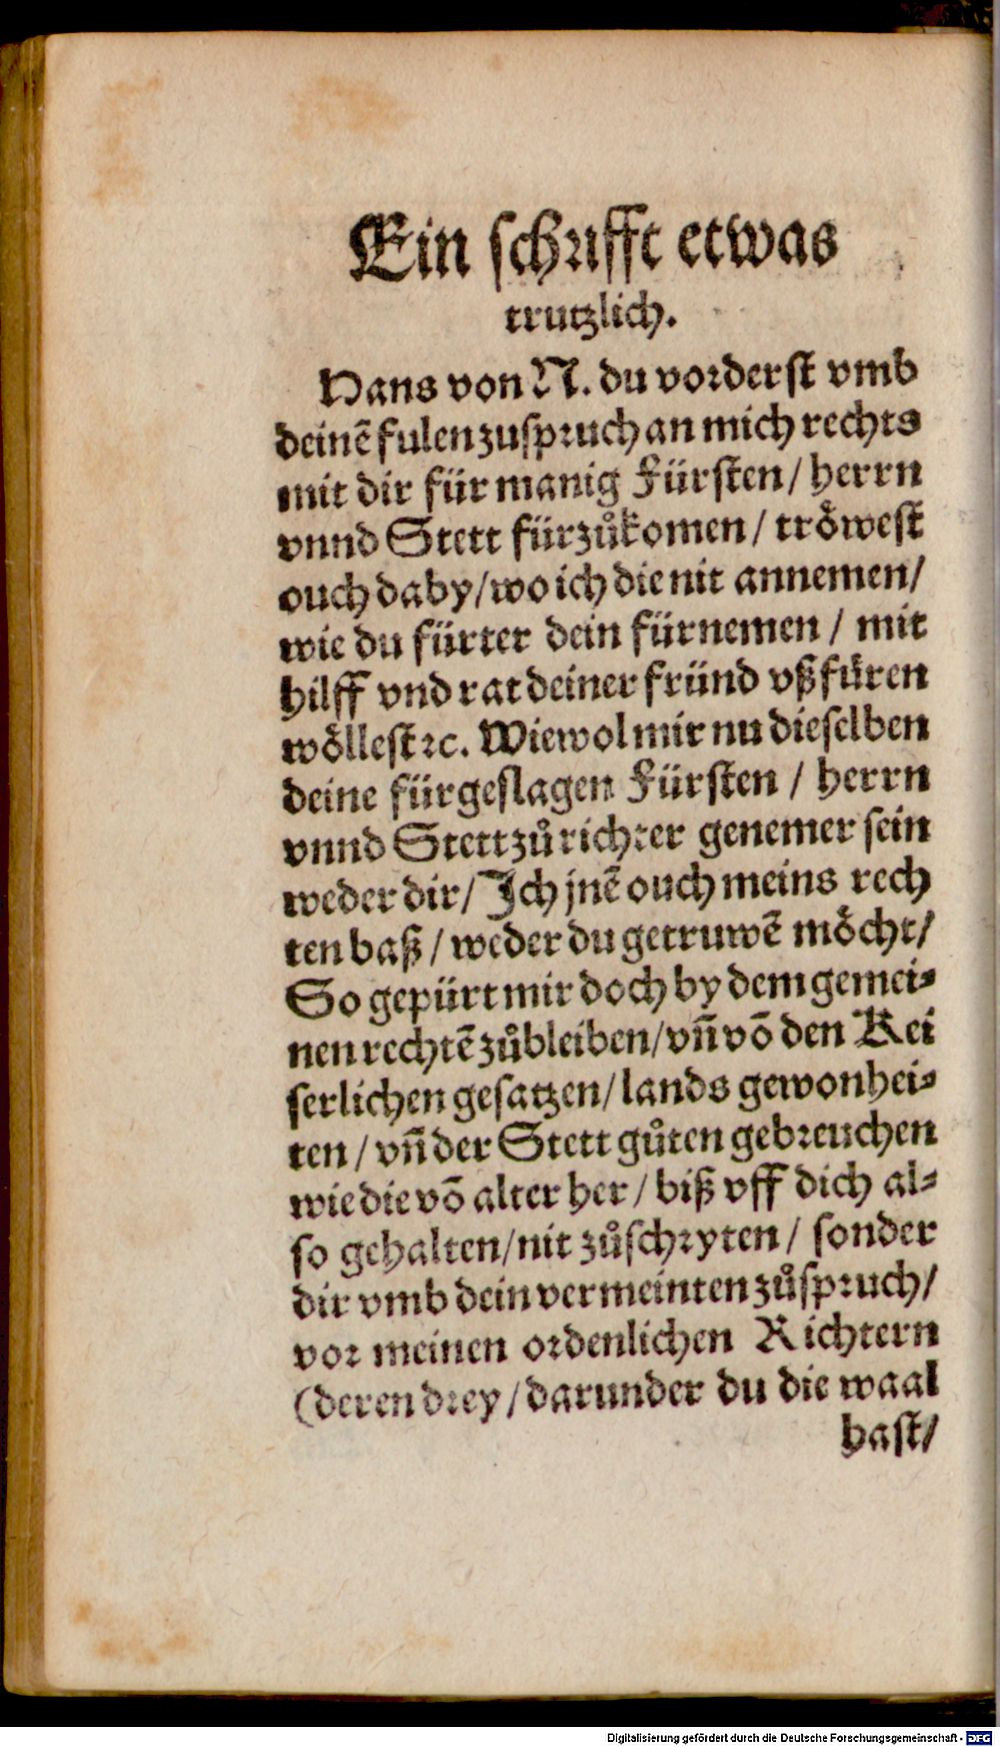 Ein schrifft etwas
trutzlich.
Hans von N. du vorderst vmb
deinē fulen zuspruch an mich rechts
mit dir für manig Fürsten / herrn
vnnd Stett fürzůkomen / trŏwest
ouch daby / wo ich die nit annemen /
wie du fürter dein fürnemen / mit
hilff vnd rat deiner fründ vßfüren
wŏllest ꝛc. Wiewol mir nu dieselben
deine fürgeslagen Fürsten / herrn
vnnd Stett zů richter genemer sein
weder dir / Ich jnē ouch meins rech
ten baß / weder du getruwē mŏcht /
So gepürt mir doch by dem gemei⸗
nen rechtē zůbleiben / vn̄ vō den Kei
serlichen gesatzen / lands gewonhei⸗
ten / vn̄ der Stett gůten gebreuchen
wie die vō alter her / biß vff dich al⸗
so gehalten / nit zůschryten / sonder
dir vmb dein vermeinten zůspruch /
vor meinen ordenlichen Richtern
(deren drey / darunder du die waal
hast /
Digitalisierung gefördert durch die Deutsche Forschungsgemeinschaft - DFG